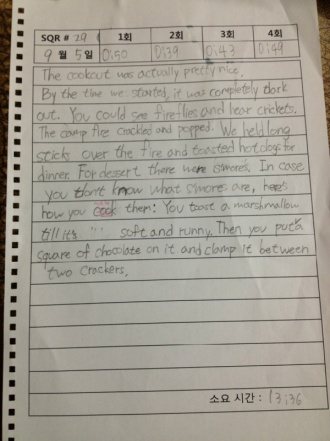 SQR # 29 1회 2회 3회 4회
9 월 5 일 0:50 0:39 0:43 0:49
The cookout was actually pretty nice.
By the time we started, it was completely dark
out. You could see fireflies and hear crickets.
The camp fire crackled and popped. We held long
sticks over the fire and toasted hot dogs for
dinner. For dessert there were s'mores. In case
you don't know what s'mores are, here's
how you cook them: You toast a marshmallow
till it's soft and runny. Then you put a
square of chocolate on it and clamp it between
two crackers.
소요 시간 : 13:36